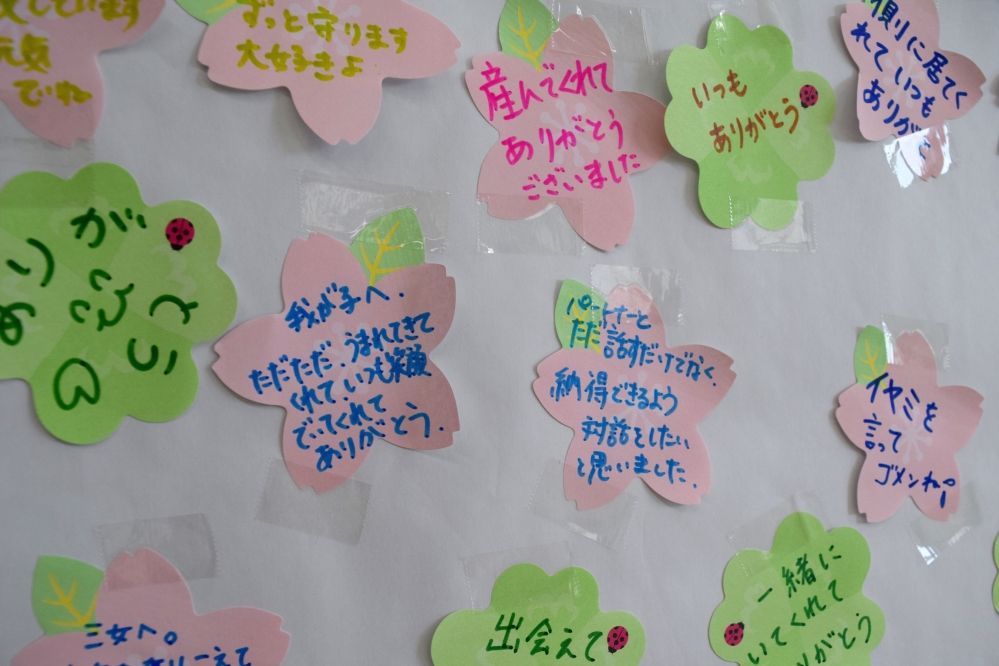 しています
元気
でいね
ずっと守ります
大好きよ
産んでくれて
ありがとう
ございました
いつも
ありがとう
横りに居てく
れていつも
ありが
ありがとう
我が子へ.
ただただ.うまれてきて
くれて、いつも笑顔
でいてくれて
ありがとう.
パートナーと
ただ話すだけでなく、
納得できるよう
対話をしたい
と思いました.
イヤミを
言って
ゴメンね!
三女へ。
出会えて
一緒に
いてくれて
りがとう